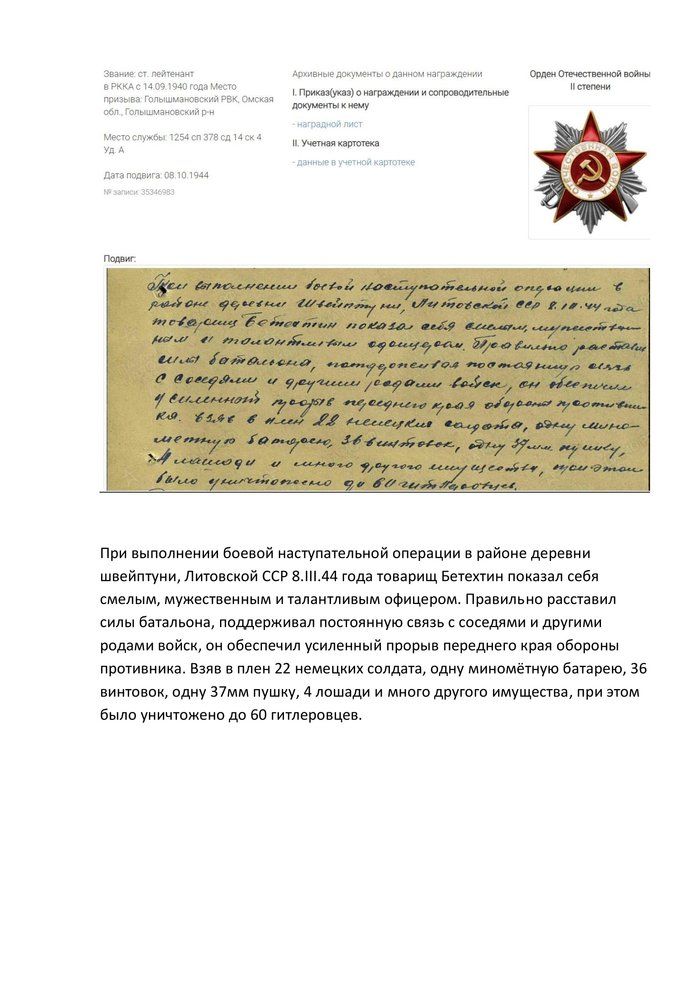 Звание: ст. лейтенант
в РККА с 14.09.1940 года Место
призыва: Голышмановский РВК, Омская
обл., Голышмановский р-н
Место службы: 1254 сп 378 сд 14 ск 4
Уд. А
Дата подвига: 08.10.1944
№ записи: 35346983
Архивные документы о данном награждении
I. Приказ(указ) о награждении и сопроводительные
документы к нему
- наградной лист
II. Учетная картотека
- данные в учетной картотеке
Орден Отечественной войны
II степени
ОТЕЧЕСТВЕННАЯ ВОЙНА
Подвиг:
При выполнении боевой наступательной операции в
районе деревни Швейптуни, Литовской ССР 8.10.44 года
товарищ Бетехтин показал себя смелым, мужествен-
ным и талантливым офицером. Правильно расставил
силы батальона, поддерживая постоянную связь
с соседями и другими родами войск, он обеспечил
усиленный прорыв переднего края обороны противни-
ка. взяв в плен 22 немецких солдата, одну мино-
метную батарею, 36 винтовок, одну 37мм пушку,
4 лошади и много другого имущества, при этом
было уничтожено до 60 гитлеровцев.
При выполнении боевой наступательной операции в районе деревни
швейптуни, Литовской ССР 8.III.44 года товарищ Бетехтин показал себя
смелым, мужественным и талантливым офицером. Правильно расставил
силы батальона, поддерживал постоянную связь с соседями и другими
родами войск, он обеспечил усиленный прорыв переднего края обороны
противника. Взяв в плен 22 немецких солдата, одну миномётную батарею, 36
винтовок, одну 37мм пушку, 4 лошади и много другого имущества, при этом
было уничтожено до 60 гитлеровцев.